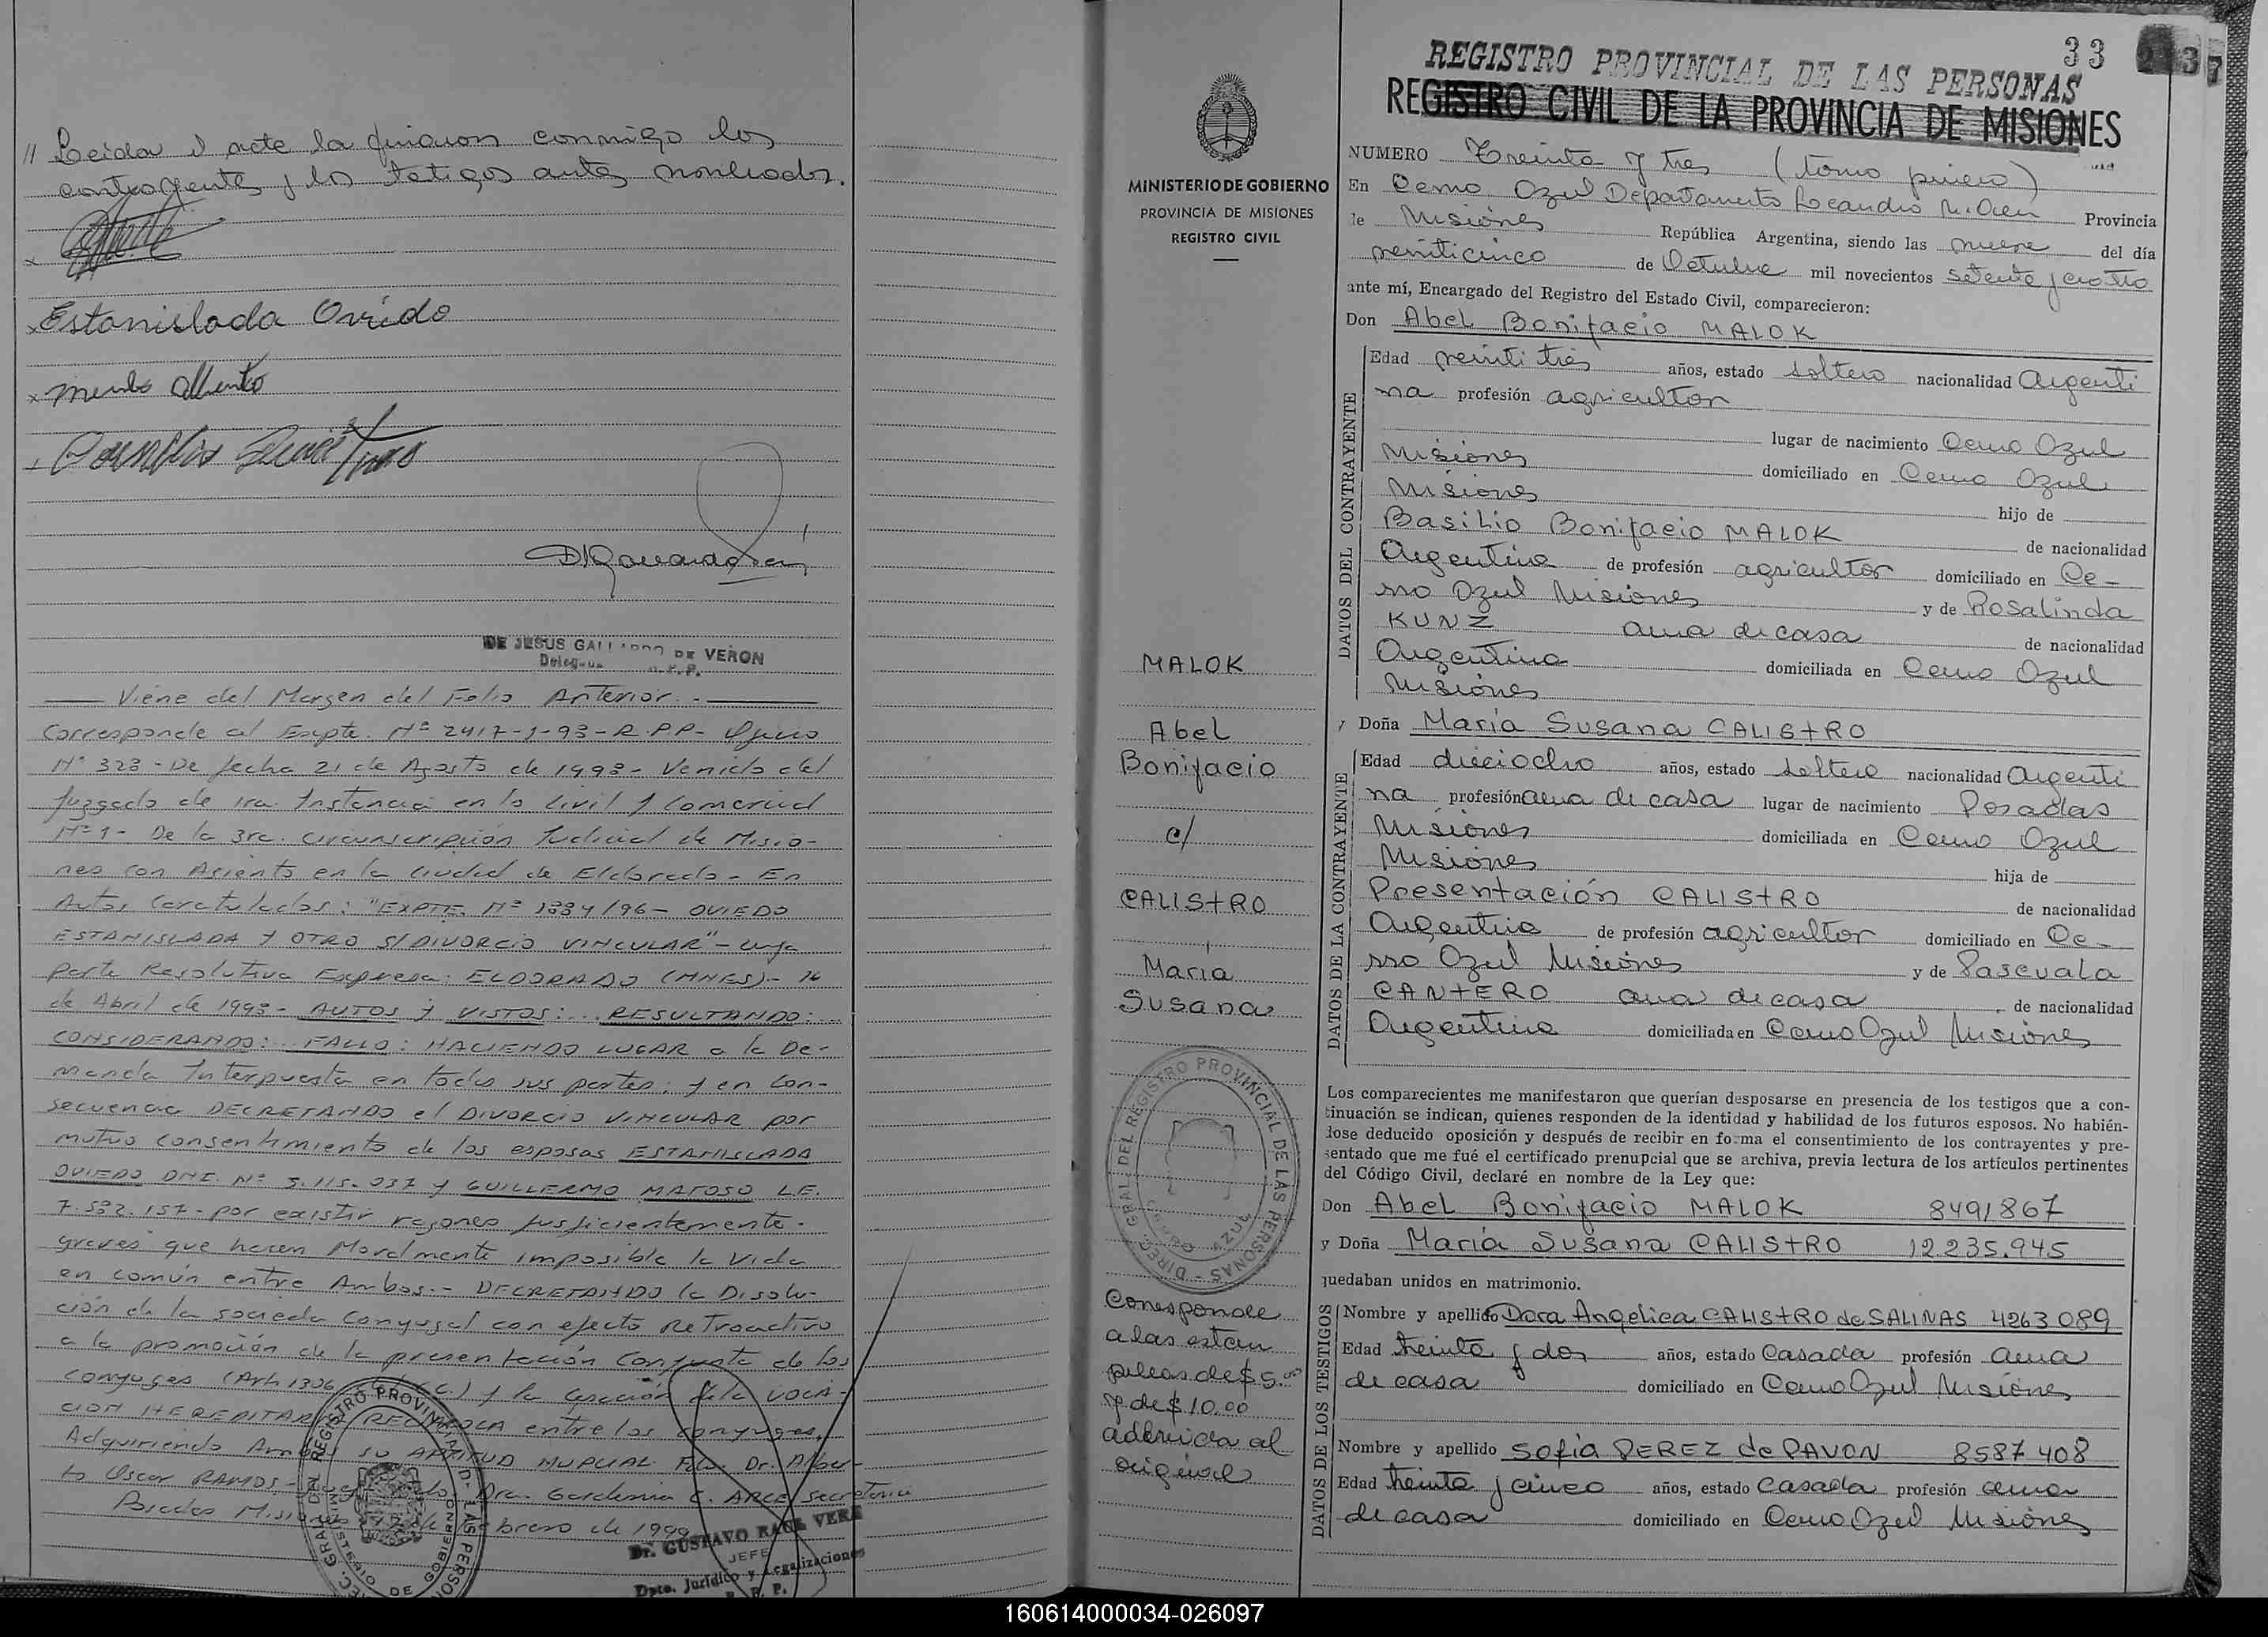 // Leida el acta la firmaron conmigo los
contrayentes y los testigos antes nombrados.
x
x Estanislada Oviedo
x
x
DE JESUS GALLARDO DE VERON
—— Viene del Margen del Folio Anterior.- ——
Corresponde al Expte. Nº 2417-J-93-R.P.P- Oficio
Nº 323 - De fecha 21 de Agosto de 1998- Venido del
Juzgado de 1ra. Instancia en lo Civil y Comercial
Nº 1- De la 3ra. Circunscripción Judicial de Misio-
nes con Asiento en la Ciudad de Eldorado - En
Autos Caratulados: "EXPTE. Nº 1334/96- OVIEDO
ESTANISLADA Y OTRO S/DIVORCIO VINCULAR"- cuya
parte Resolutiva Expresa: ELDORADO (MNES)- 16
de Abril de 1998- AUTOS Y VISTOS:... RESULTANDO:...
CONSIDERANDO:... FALLO: HACIENDO LUGAR a la De-
manda Interpuesta en todas sus partes; y en Con-
secuencia DECRETANDO el DIVORCIO VINCULAR por
mutuo consentimiento de los esposos ESTANISLADA
OVIEDO DNI. Nº 5.115.037 y GUILLERMO MATOSO L.E.
7.532.157- por existir razones suficientemente-
graves que hacen Moralmente imposible la Vida
en común entre Ambos.- DECRETANDO la Disolu-
ción de la sociedad Conyugal con efecto Retroactivo
a la promoción de la presentación Conjunta de los
Conyuges (Art. 1306 C.C.) y la Cesación de la VOCA-
CION HEREDITARIA RECIPROCA entre los conyuges.
Adquiriendo Ambos su APTITUD NUPCIAL. Fdo. Dr. Alber-
to Oscar RAMOS - Dra. Gardenia C. ARCE Secretaria
Posadas Misiones Febrero de 1999
Dr. GUSTAVO RAUL VERA
JEFE
Dpto. Jurídico y Legalizaciones
R. P. P.
MINISTERIO DE GOBIERNO
PROVINCIA DE MISIONES
REGISTRO CIVIL
MALOK
Abel
Bonifacio
c/
CALISTRO
Maria
Susana
DIREC. GRAL DEL REGISTRO PROVINCIAL DE LAS PERSONAS
Corresponde
a las estam
pillas de $ 5.00
y de $ 10.00
adherida al
original
33
REGISTRO PROVINCIAL DE LAS PERSONAS
REGISTRO CIVIL DE LA PROVINCIA DE MISIONES
NUMERO Treinta y tres (tomo primero)
En Cerro Azul Departamento Leandro N. Alem Provincia
de Misiones República Argentina, siendo las nueve del día
veinticinco de Octubre mil novecientos setenta y cuatro
ante mí, Encargado del Registro del Estado Civil, comparecieron:
Don Abel Bonifacio MALOK
DATOS DEL CONTRAYENTE
Edad veinti tres años, estado soltero nacionalidad Argenti
na profesión agricultor
lugar de nacimiento Cerro Azul
Misiones domiciliado en Cerro Azul
Misiones hijo de
Basilio Bonifacio MALOK de nacionalidad
Argentina de profesión agricultor domiciliado en Ce-
rro Azul Misiones y de Rosalinda
KUNZ ama de casa de nacionalidad
Argentina domiciliada en Cerro Azul
Misiones
y Doña Maria Susana CALISTRO
DATOS DE LA CONTRAYENTE
Edad dieciocho años, estado soltera nacionalidad Argenti
na profesión ama de casa lugar de nacimiento Posadas
Misiones domiciliada en Cerro Azul
Misiones hija de
Presentación CALISTRO de nacionalidad
Argentina de profesión agricultor domiciliado en Ce-
rro Azul Misiones y de Pascuala
CANTERO ama de casa de nacionalidad
Argentina domiciliada en Cerro Azul Misiones
Los comparecientes me manifestaron que querían desposarse en presencia de los testigos que a con-
tinuación se indican, quienes responden de la identidad y habilidad de los futuros esposos. No habién-
dose deducido oposición y después de recibir en forma el consentimiento de los contrayentes y pre-
sentado que me fué el certificado prenupcial que se archiva, previa lectura de los artículos pertinentes
del Código Civil, declaré en nombre de la Ley que:
Don Abel Bonifacio MALOK 8491867
y Doña Maria Susana CALISTRO 12.235.945
quedaban unidos en matrimonio.
DATOS DE LOS TESTIGOS
Nombre y apellido Dora Angelica CALISTRO de SALINAS 4263089
Edad treinta y dos años, estado Casada profesión ama
de casa domiciliado en Cerro Azul Misiones
Nombre y apellido Sofia PEREZ de PAVON 8587408
Edad treinta y cinco años, estado Casada profesión ama
de casa domiciliado en Cerro Azul Misiones
160614000034-026097